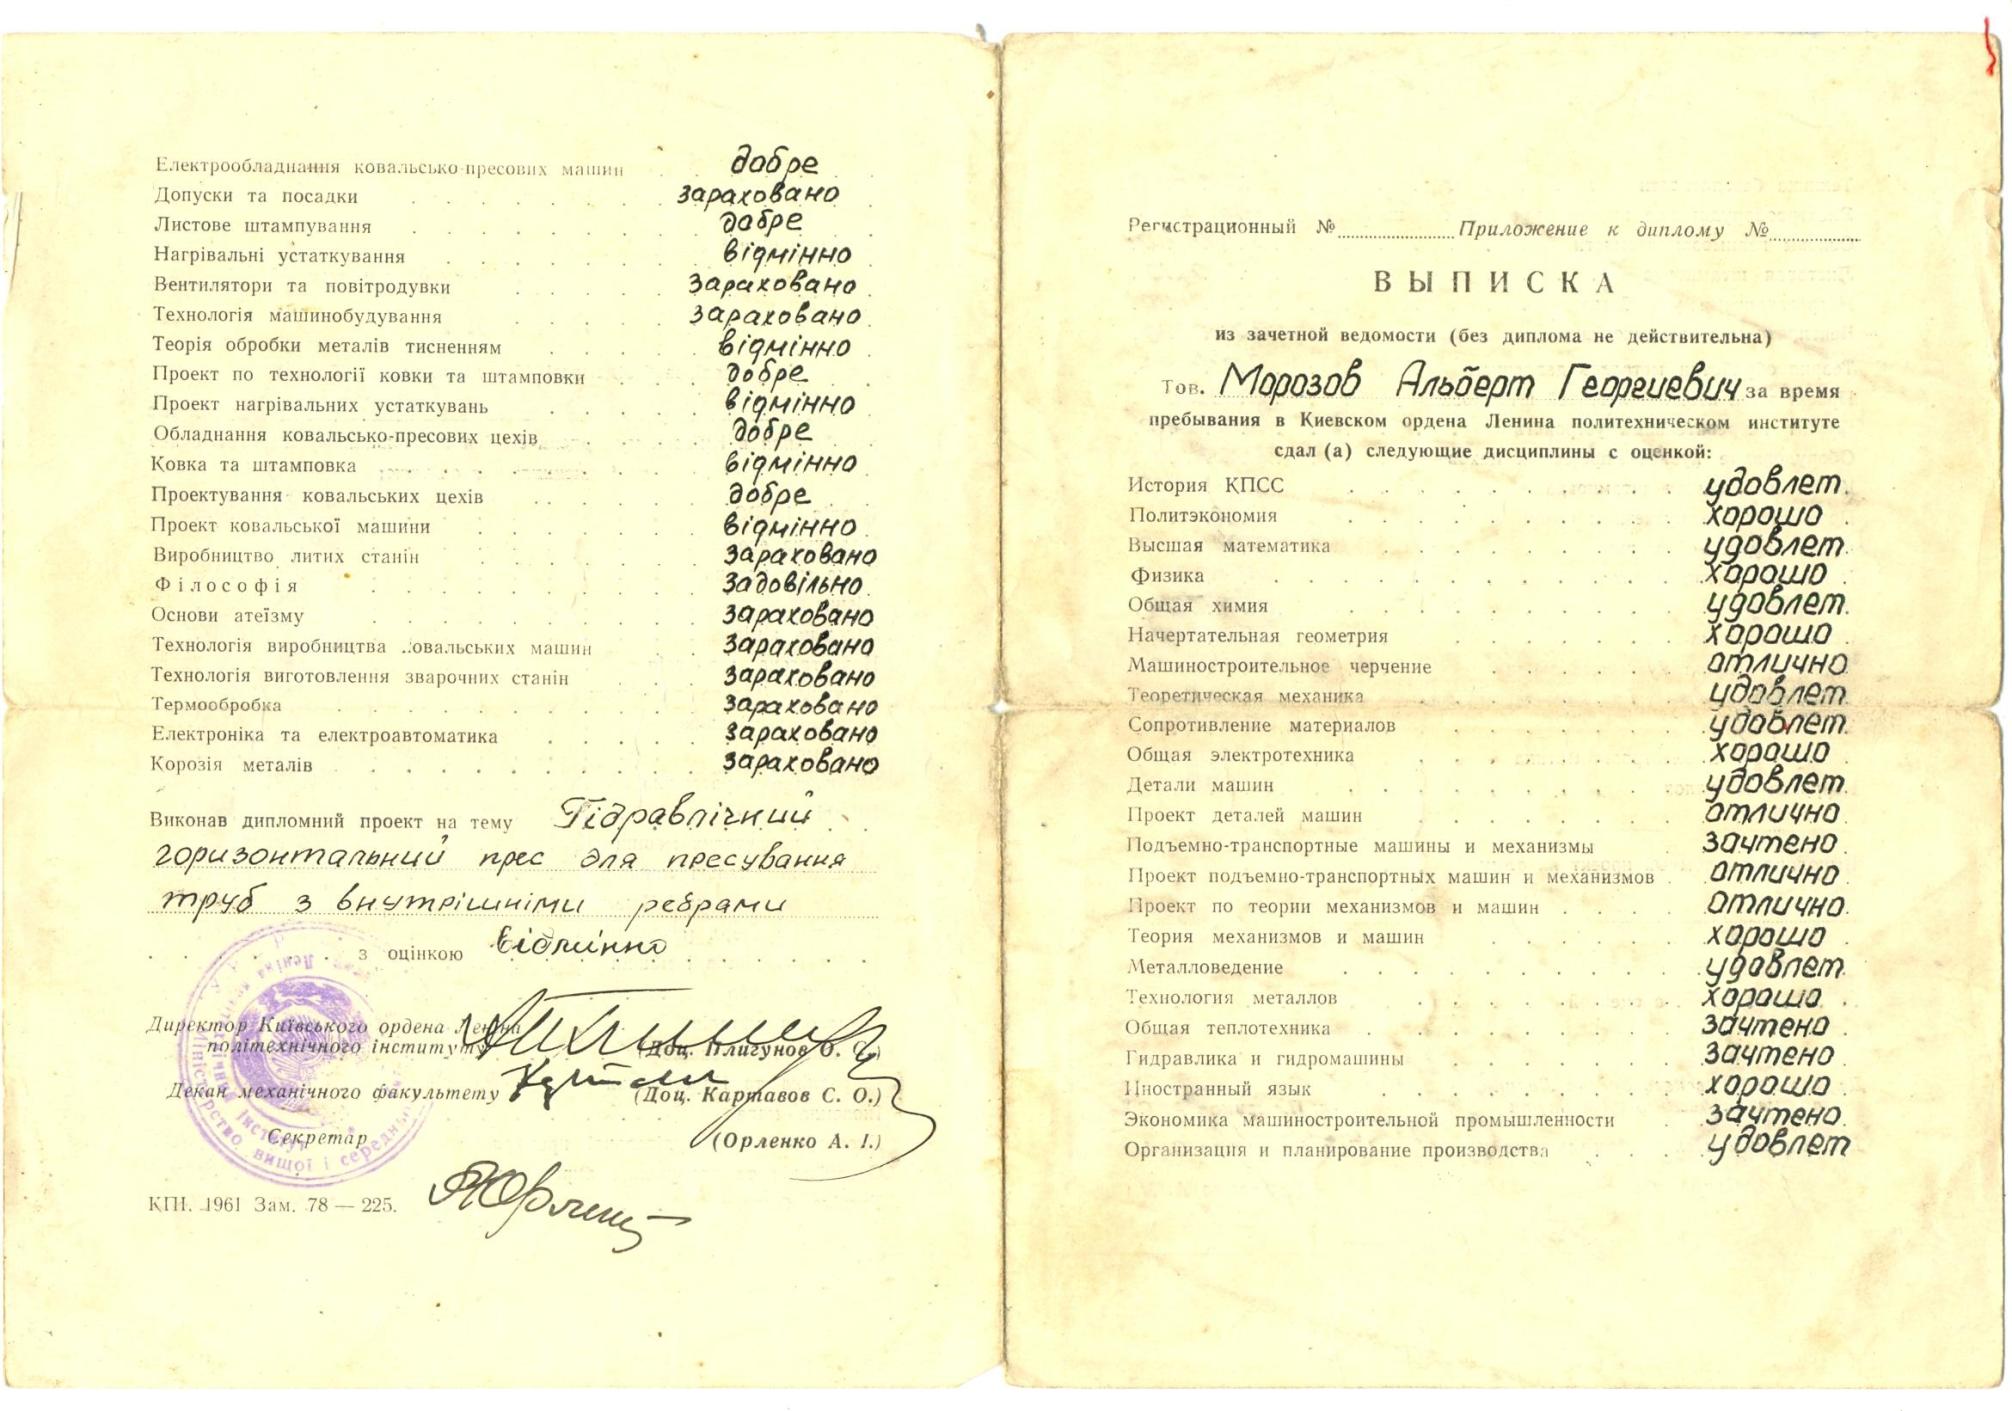 Електрообладнання ковальсько-пресових машин добре
Допуски та посадки зараховано
Листове штампування добре
Нагрівальні устаткування відмінно
Вентилятори та повітродувки зараховано
Технологія машинобудування зараховано
Теорія обробки металів тисненням відмінно
Проект по технології ковки та штамповки добре
Проект нагрівальних устаткувань відмінно
Обладнання ковальсько-пресових цехів добре
Ковка та штамповка відмінно
Проектування ковальських цехів добре
Проект ковальської машини відмінно
Виробництво литих станін зараховано
Філософія задовільно
Основи атеїзму зараховано
Технологія виробництва ковальських машин зараховано
Технологія виготовлення зварочних станін зараховано
Термообробка зараховано
Електроніка та електроавтоматика зараховано
Корозія металів зараховано
Виконав дипломний проект на тему Гідравлічний
горизонтальний прес для пресування
труб з внутрішніми ребрами
з оцінкою відмінно
Директор Київського ордена Леніна
політехнічного інституту (Доц. Плигунов О. С.)
Декан механічного факультету (Доц. Картавов С. О.)
Секретар (Орленко А. І.)
КПІ. 1961 Зам. 78 — 225.
Регистрационный № Приложение к диплому №
ВЫПИСКА
из зачетной ведомости (без диплома не действительна)
Тов. Морозов Альберт Георгиевич за время
пребывания в Киевском ордена Ленина политехническом институте
сдал (а) следующие дисциплины с оценкой:
История КПСС удовлет.
Политэкономия хорошо
Высшая математика удовлет.
Физика хорошо
Общая химия удовлет.
Начертательная геометрия хорошо
Машиностроительное черчение отлично
Теоретическая механика удовлет.
Сопротивление материалов удовлет.
Общая электротехника хорошо
Детали машин удовлет.
Проект деталей машин отлично
Подъемно-транспортные машины и механизмы зачтено
Проект подъемно-транспортных машин и механизмов отлично
Проект по теории механизмов и машин отлично
Теория механизмов и машин хорошо
Металловедение удовлет.
Технология металлов хорошо
Общая теплотехника зачтено
Гидравлика и гидромашины зачтено
Иностранный язык хорошо
Экономика машиностроительной промышленности зачтено
Организация и планирование производства удовлет